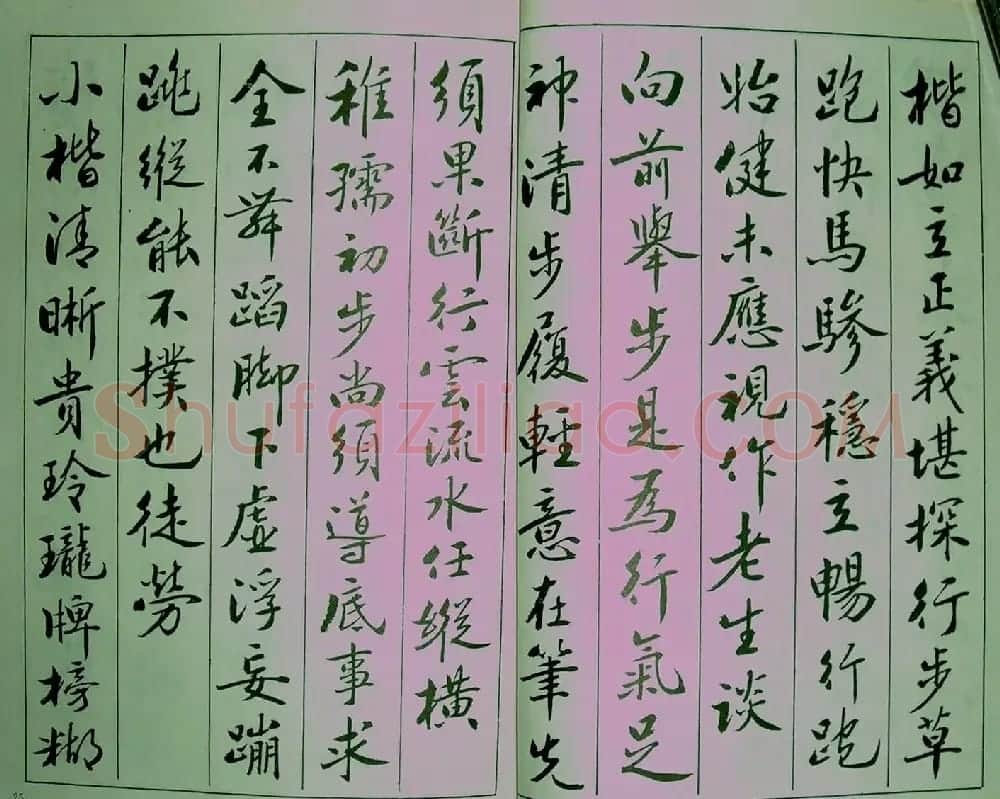 楷如立正義堪探行步草
跑快馬驂穩立暢行跑
眙健未應視作老生談
向前舉步是為行氣足
神清步履輕意在筆先
須果斷行雲流水任縱橫
稚孺初步尚須導底事求
全不舞蹈腳下虛浮妄蹦
跳縱能不撲也徒勞
小楷清晰貴玲瓏牌榜糊
Shufaziliao.COM